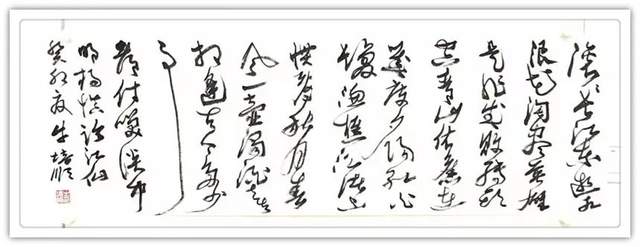 滚滚长江东逝水
浪花淘尽英雄
是非成败转头
空青山依旧在
几度夕阳红白
发渔樵江渚上
惯看秋月春
风一壶浊酒喜
相逢古今多少
事
都付笑谈中
明杨慎临江仙
癸卯夏牛培顺